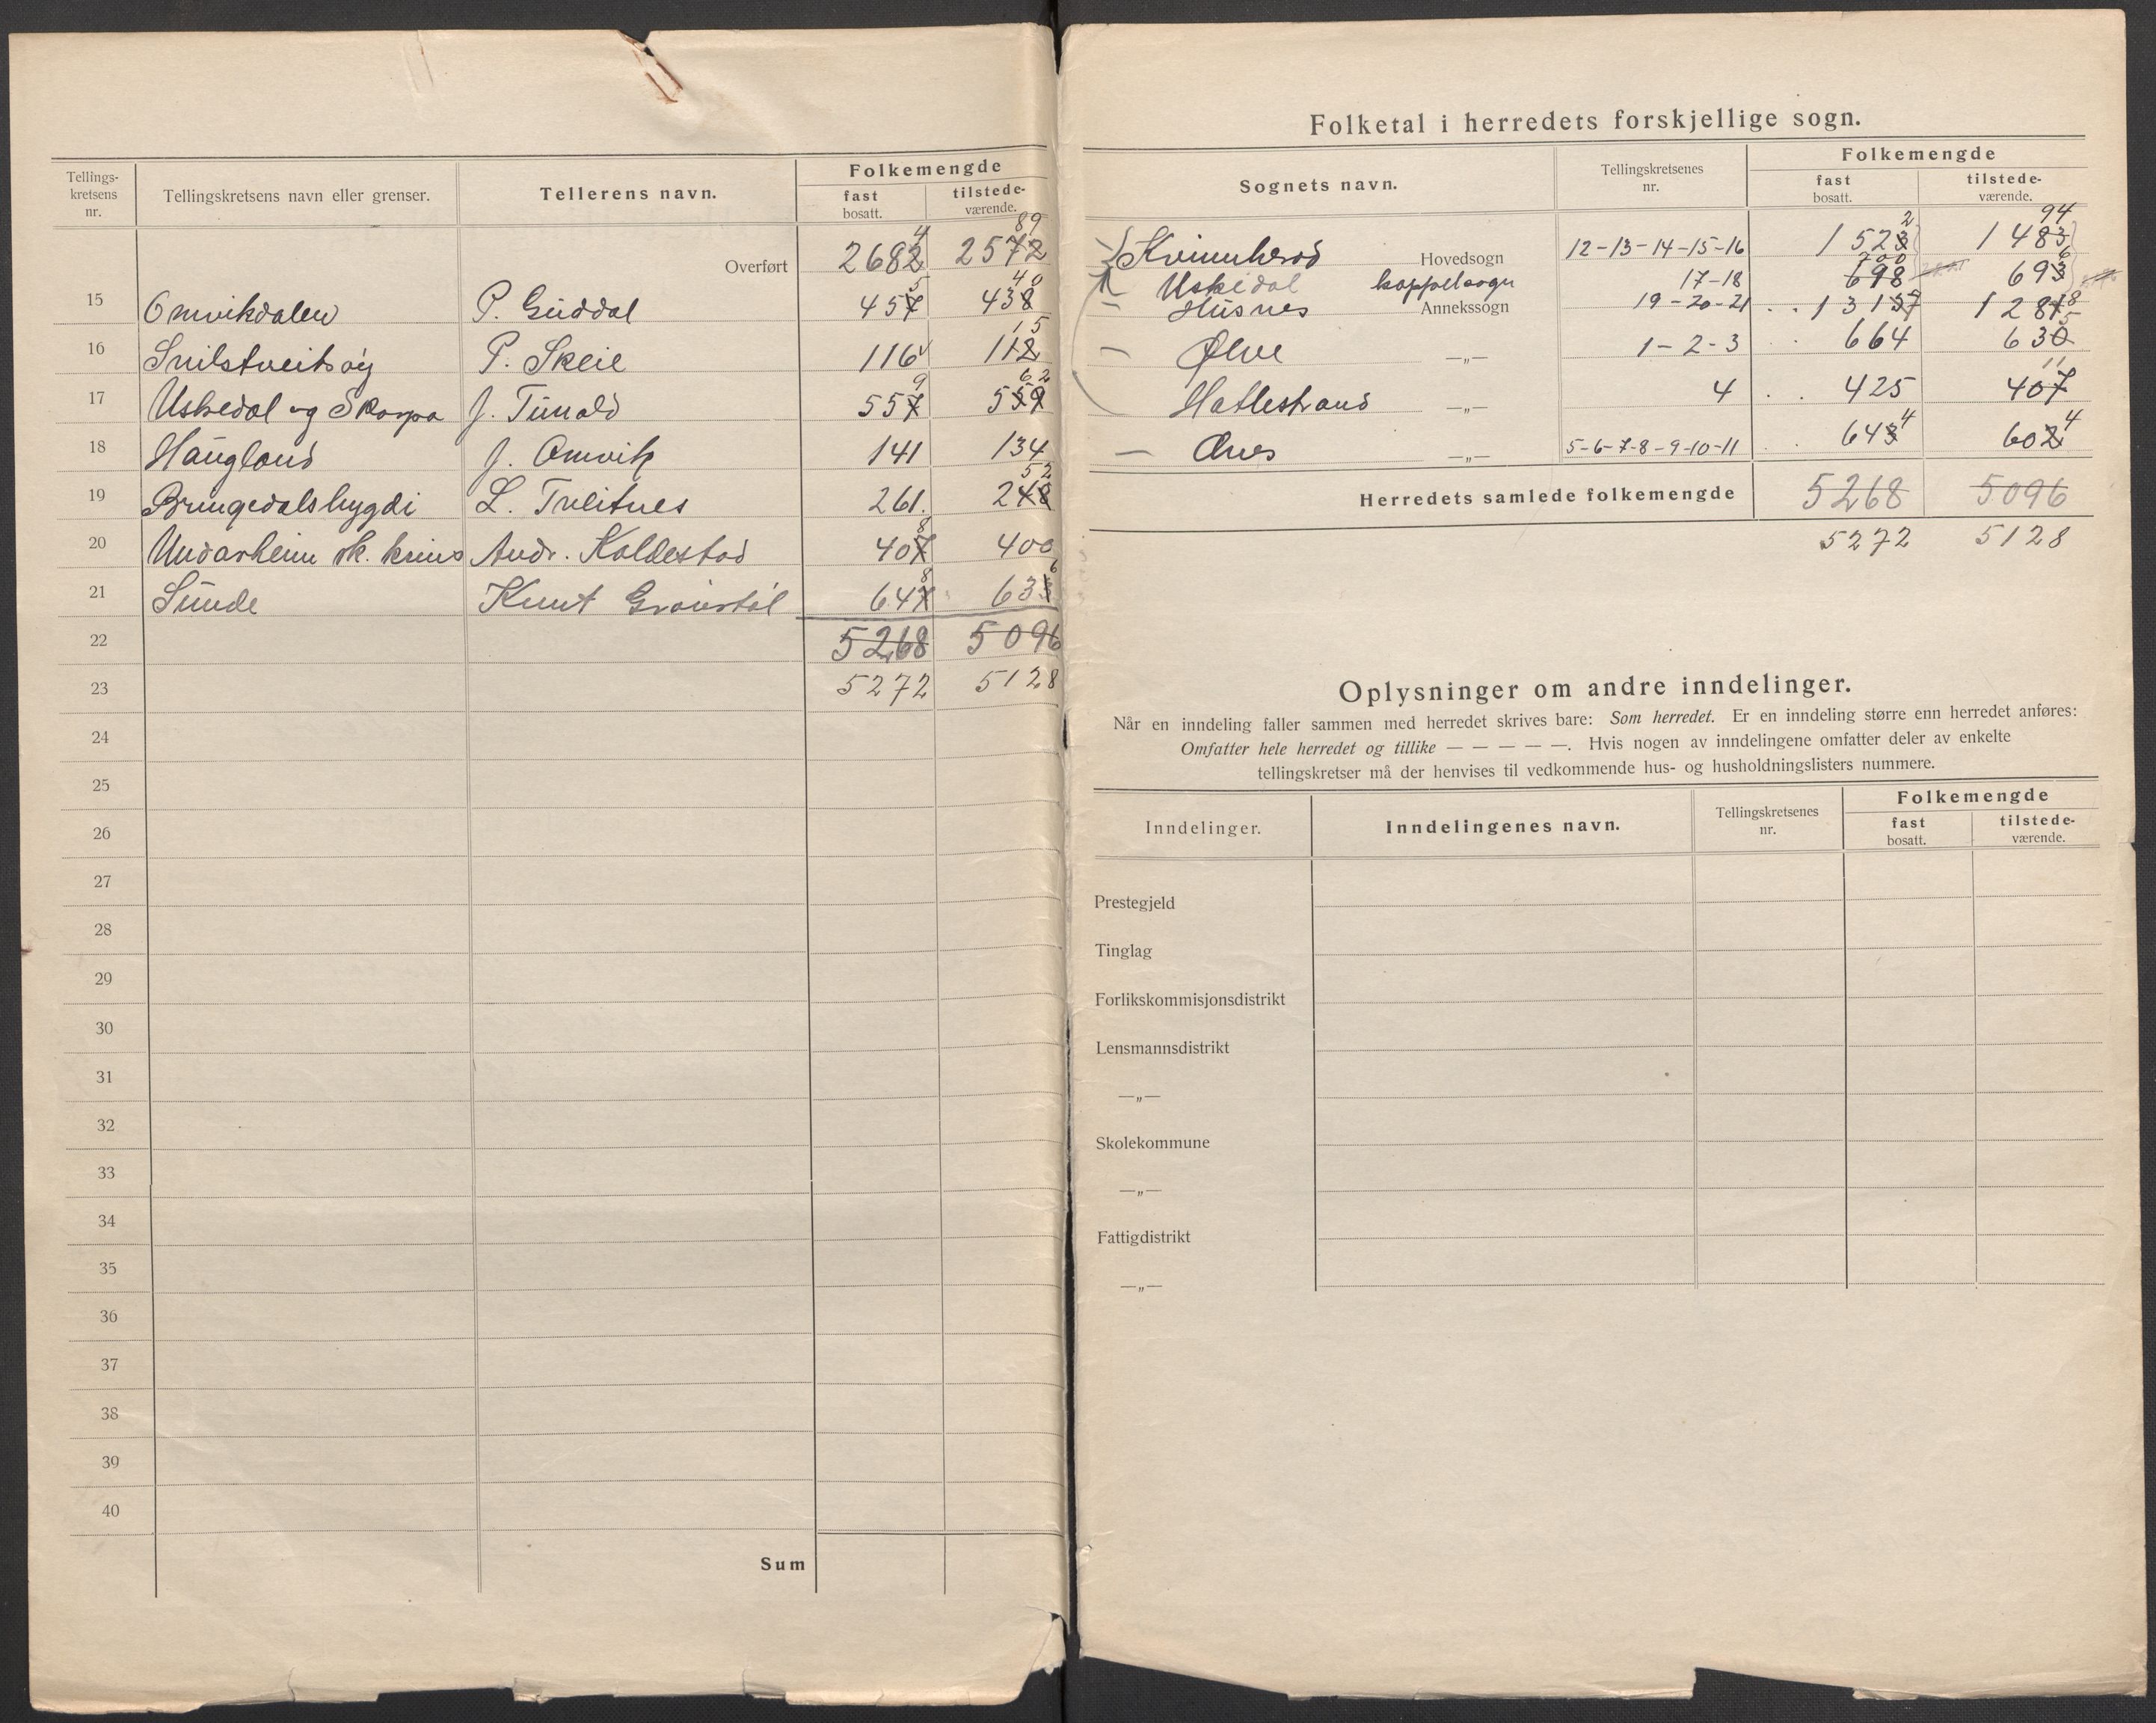 Tellings-kretsens nr. | Tellingskretsens navn eller grenser. | Tellerens navn. | Folkemengde
fast bosatt. | tilstede-værende.
89
4
Overført 2682 2572
15 Omvikdalen P. Guddal 457 5 438 40
16 Snilstveitøy P. Skeie 116 112 15
17 Uskedal og Skorpo J. Tunald 557 9 559 62
18 Haugland J. Omvik 141 134
19 Bringedalsbygdi L. Tveitnes 261. 248 52
20 Undarheim sk. krins Andr. Koldestad 407 8 400
21 Sunde Knut 647 8 633 6
22 5268 5096
23 5272 5128
24
25
26
27
28
29
30
31
32
33
34
35
36
37
38
39
40
Sum
Folketal i herredets forskjellige sogn.
Sognets navn. | Tellingskretsenes nr. | Folkemengde
fast bosatt. | tilstede-værende.
Kvinnherad Hovedsogn 12-13-14-15-16 1523 2 1483 94
Uskedal kappelsogn 17-18 698 700 693 6
Husnes Annekssogn 19-20-21 1315 7 1281 8
Ølve —„— 1-2-3 664 630 5
Hatlestrand —„— 4 425 407 11
Ænes —„— 5-6-7-8-9-10-11 643 4 602 4
Herredets samlede folkemengde 5268 5096
5272 5128
Oplysninger om andre inndelinger.
Når en inndeling faller sammen med herredet skrives bare: Som herredet. Er en inndeling større enn herredet anføres:
Omfatter hele herredet og tillike — — — — —. Hvis nogen av inndelingene omfatter deler av enkelte
tellingskretser må der henvises til vedkommende hus- og husholdningslisters nummere.
Inndelinger. | Inndelingenes navn. | Tellingskretsenes nr. | Folkemengde
fast bosatt. | tilstede-værende.
Prestegjeld
Tinglag
Forlikskommisjonsdistrikt
Lensmannsdistrikt
—„—
Skolekommune
—„—
Fattigdistrikt
—„—